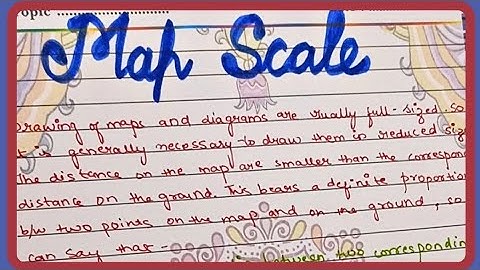 opic :
Map Scale
Drawing of maps and diagrams are rually full-sized. so
it is generally necessary to draw them in reduced siz
The distance on the map are smaller than the correspon
distance on the ground. This bears a definite proportion
b/w two points on the map and on the ground, so
can say that -
between two correspondin